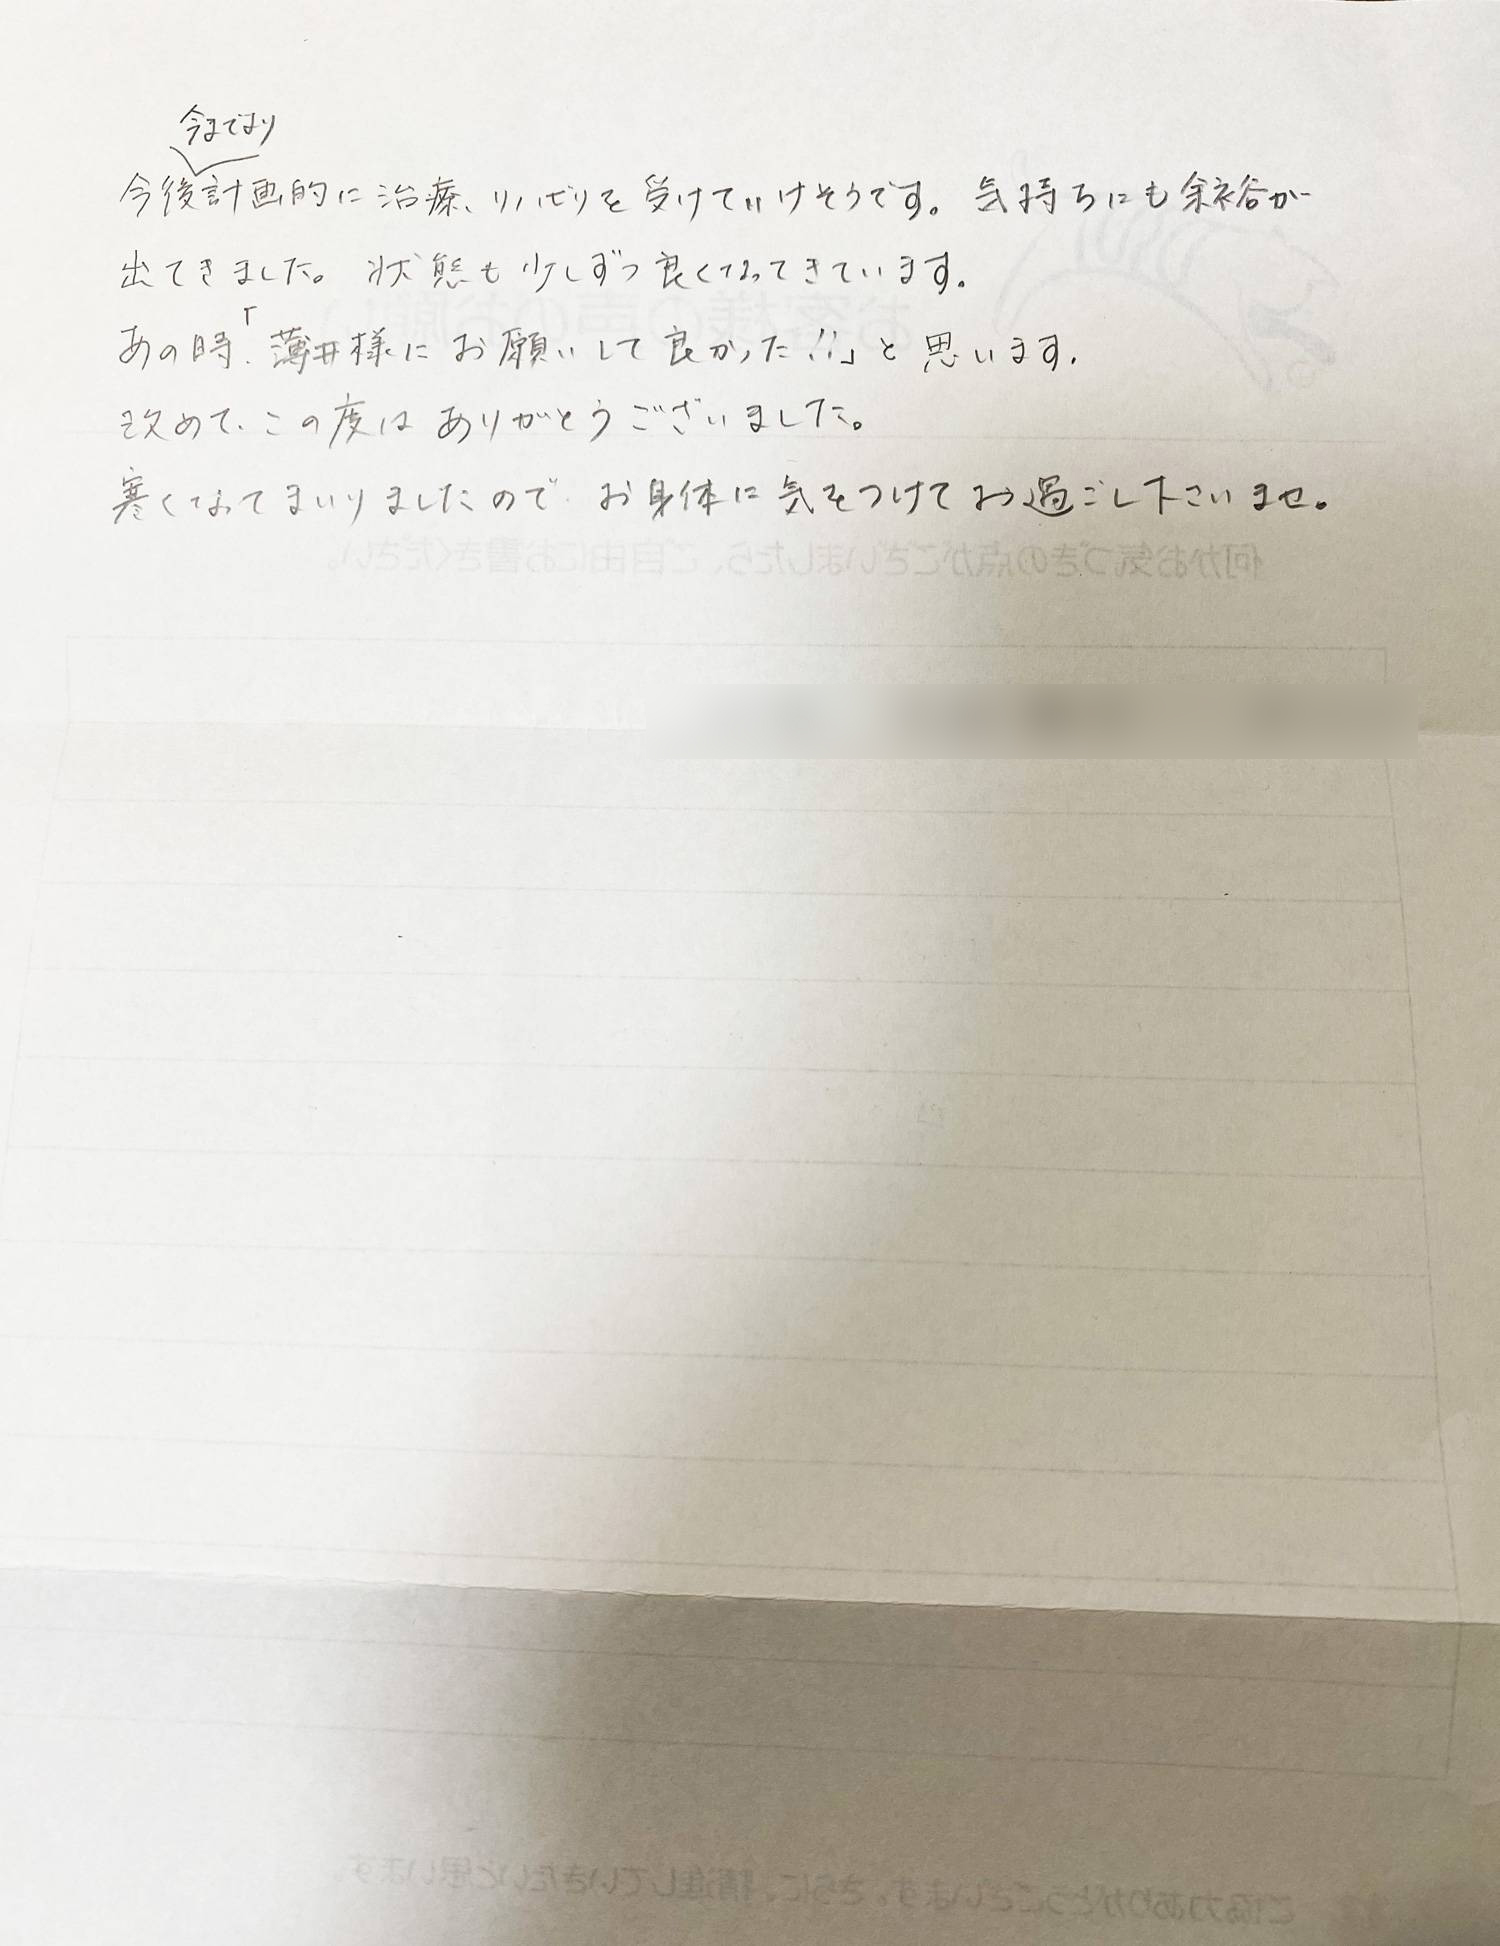 今までより
今後計画的に治療、リハビリを受けていけそうです。気持ちにも余裕が
出てきました。状態も少しずつ良くなってきています。
あの時、「薄井様にお願いして良かった!!」と思います。
改めて、この度はありがとうございました。
寒くなってまいりましたので、お身体に気をつけてお過ごし下さいませ。
お客様の声のお願い
何かお気づきの点がございましたら、ご自由にお書きください。
ご協力ありがとうございます。さらに、精進していきたいと思います。